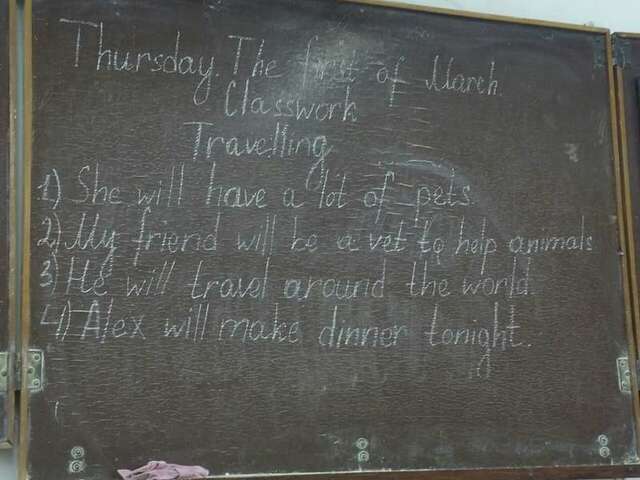 Thursday. The first of March.
Classwork
Travelling
1) She will have a lot of pets.
2) My friend will be a vet to help animals
3) He will travel around the world.
4) Alex will make dinner tonight.